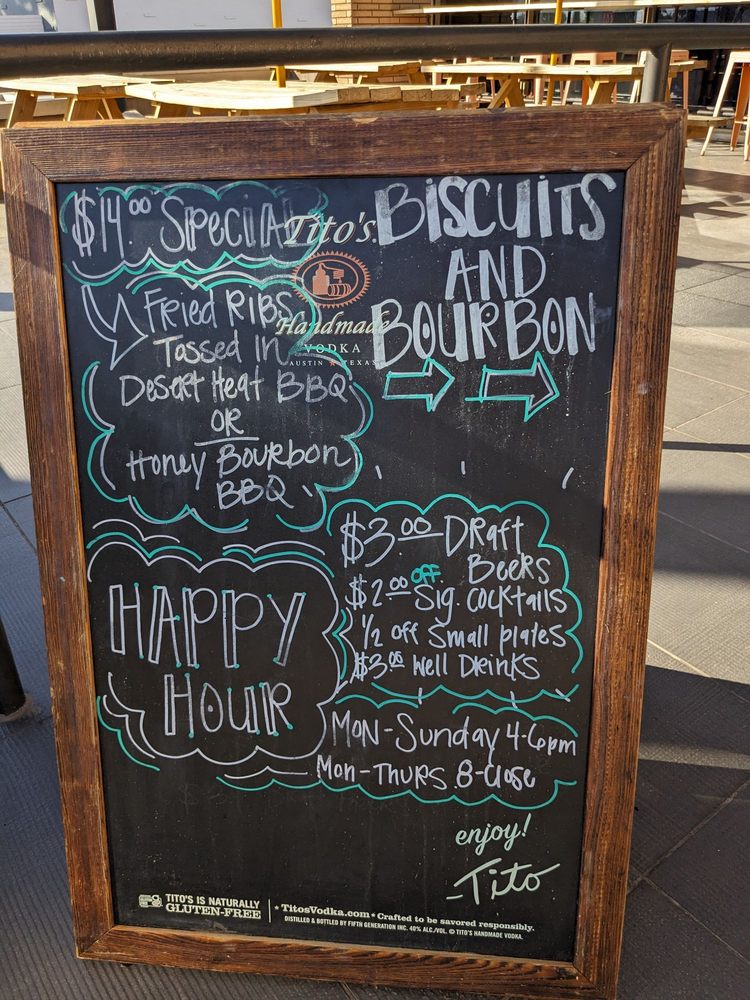 $14.00 Special
Fried Ribs
Tossed in
Desert Heat BBQ
OR
Honey Bourbon
BBQ
Tito's
Handmade
VODKA
AUSTIN ★ TEXAS
BISCUITS
AND
BOURBON
HAPPY
HOUR
$3.00 Draft
Beers
$2.00 off Sig. Cocktails
1/2 off Small plates
$3.00 Well Drinks
Mon-Sunday 4-6pm
Mon-Thurs 8-Close
enjoy!
-Tito
TITO'S IS NATURALLY
GLUTEN-FREE
* TitosVodka.com * Crafted to be savored responsibly.
DISTILLED & BOTTLED BY FIFTH GENERATION INC. 40% ALC./VOL. © TITO'S HANDMADE VODKA.